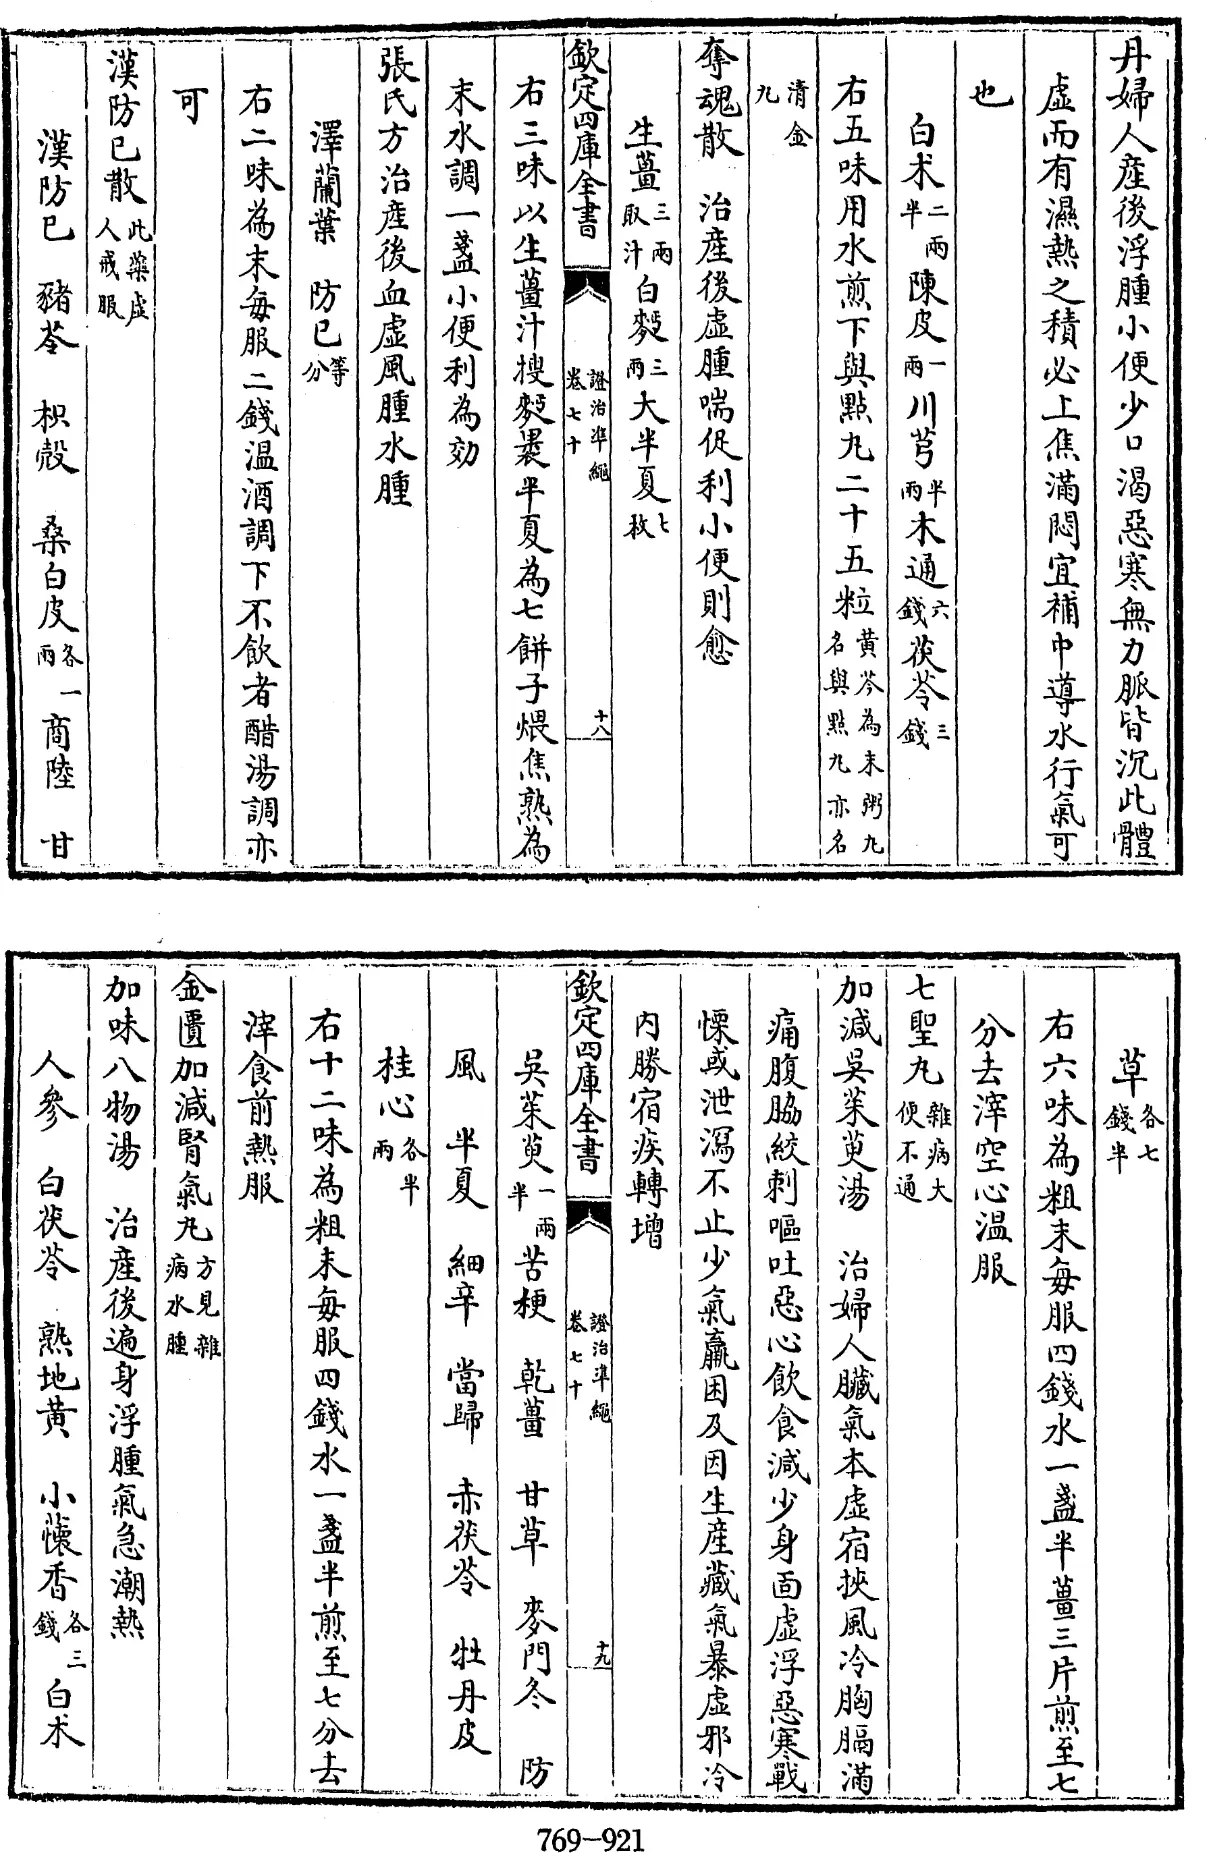 丹婦人産後浮腫小便少口渴惡寒無力脈皆沉此體
虛而有濕熱之積必上焦滿悶宜補中導水行氣可
也
白术二兩半陳皮一兩川芎半兩木通六錢茯苓三錢
右五味用水煎下與點丸二十五粒黄芩為末粥丸名與點丸亦名
清金丸
奪魂散 治産後虛腫喘促利小便則愈
生薑三兩取汁白麫三兩大半夏七枚
欽定四庫全書 證治準繩卷七十 十八
右三味以生薑汁搜麫裹半夏為七餅子煨焦熟為
末水調一盞小便利為効
張氏方治産後血虛風腫水腫
澤蘭葉 防已等分
右二味為末每服二錢温酒調下不飲者醋湯調亦
可
漢防已散此藥虛人戒服
漢防已 豬苓 枳殼 桑白皮各一兩商陸 甘
草各七錢半
右六味為粗末每服四錢水一盞半薑三片煎至七
分去滓空心温服
七聖丸雜病大便不通
加減吳茱萸湯 治婦人臟氣本虛宿挾風冷胸膈滿
痛腹脇絞刺嘔吐惡心飲食減少身面虛浮惡寒戰
慄或泄瀉不止少氣羸困及因生産藏氣暴虛邪冷
内勝宿疾轉增
欽定四庫全書 證治準繩卷七十 十九
吳茱萸一兩半苦梗 乾薑 甘草 麥門冬 防
風 半夏 細辛 當歸 赤茯苓 牡丹皮
桂心各半兩
右十二味為粗末每服四錢水一盞半煎至七分去
滓食前熱服
金匱加減腎氣丸方見雜病水腫
加味八物湯 治産後遍身浮腫氣急潮熱
人參 白茯苓 熟地黄 小懷香各三錢白术
769-921